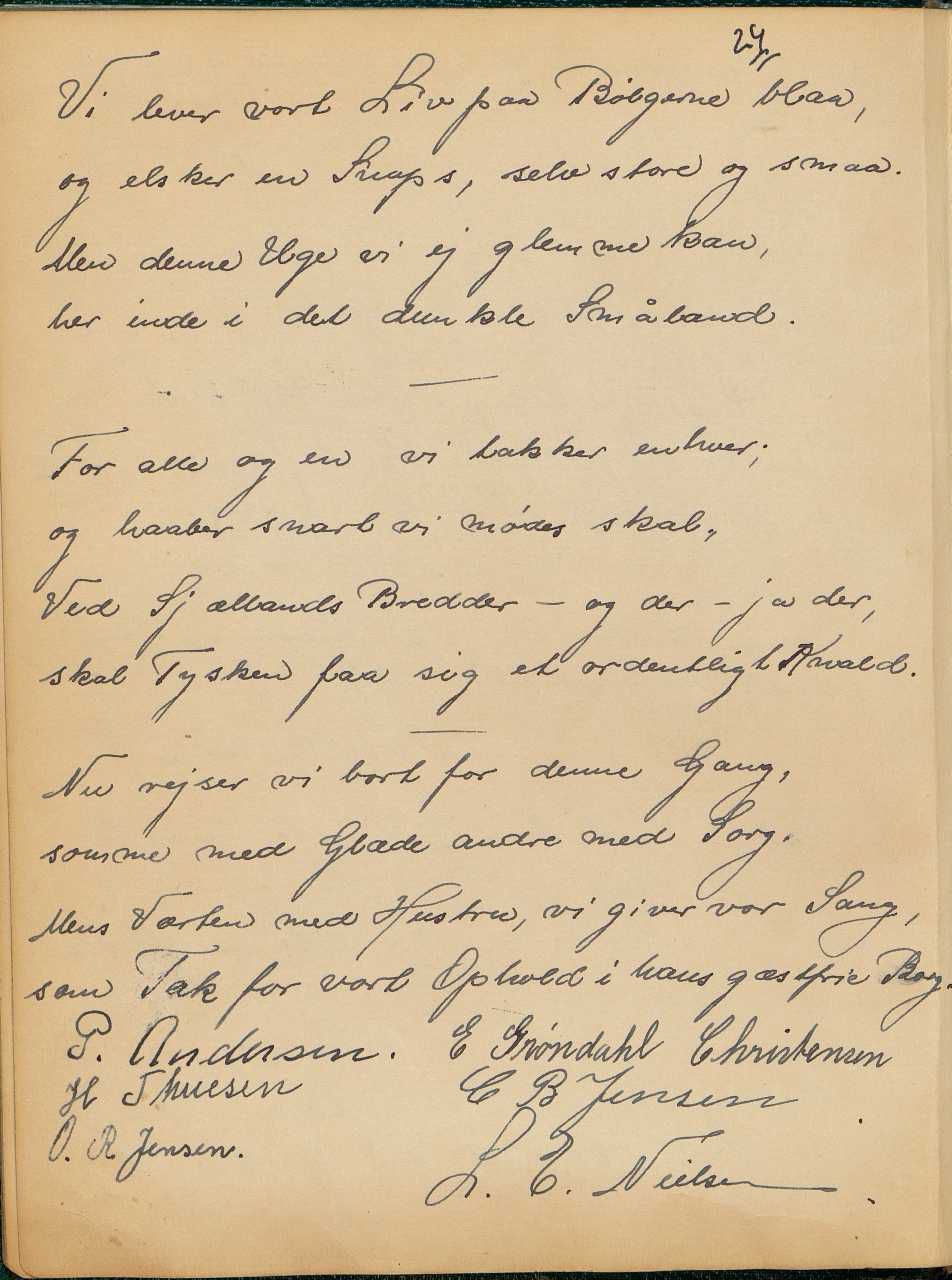 24/11
Vi lever vort Liv paa Bølgerne blaa,
og elsker en Snaps, selv store og smaa.
Men denne Uge vi ej glemme kan,
her inde i det dunkle Småland.
For alle og en vi takker enhver;
og haaber snart vi mødes skal,,
Ved Sjællands Bredder – og der – ja der,
skal Tysken faa sig et ordentligt Kvald.
Nu rejser vi bort for denne Gang,
somme med Glæde andre med Sorg.
Mens Værten med Hustru, vi giver vor Sang,
som Tak for vort Ophold i hans gæstfrie Borg.
P. Andersen. E Grøndahl Christensen
H Thuesen C B Jensen
O. R Jensen. L. E. Nielsen